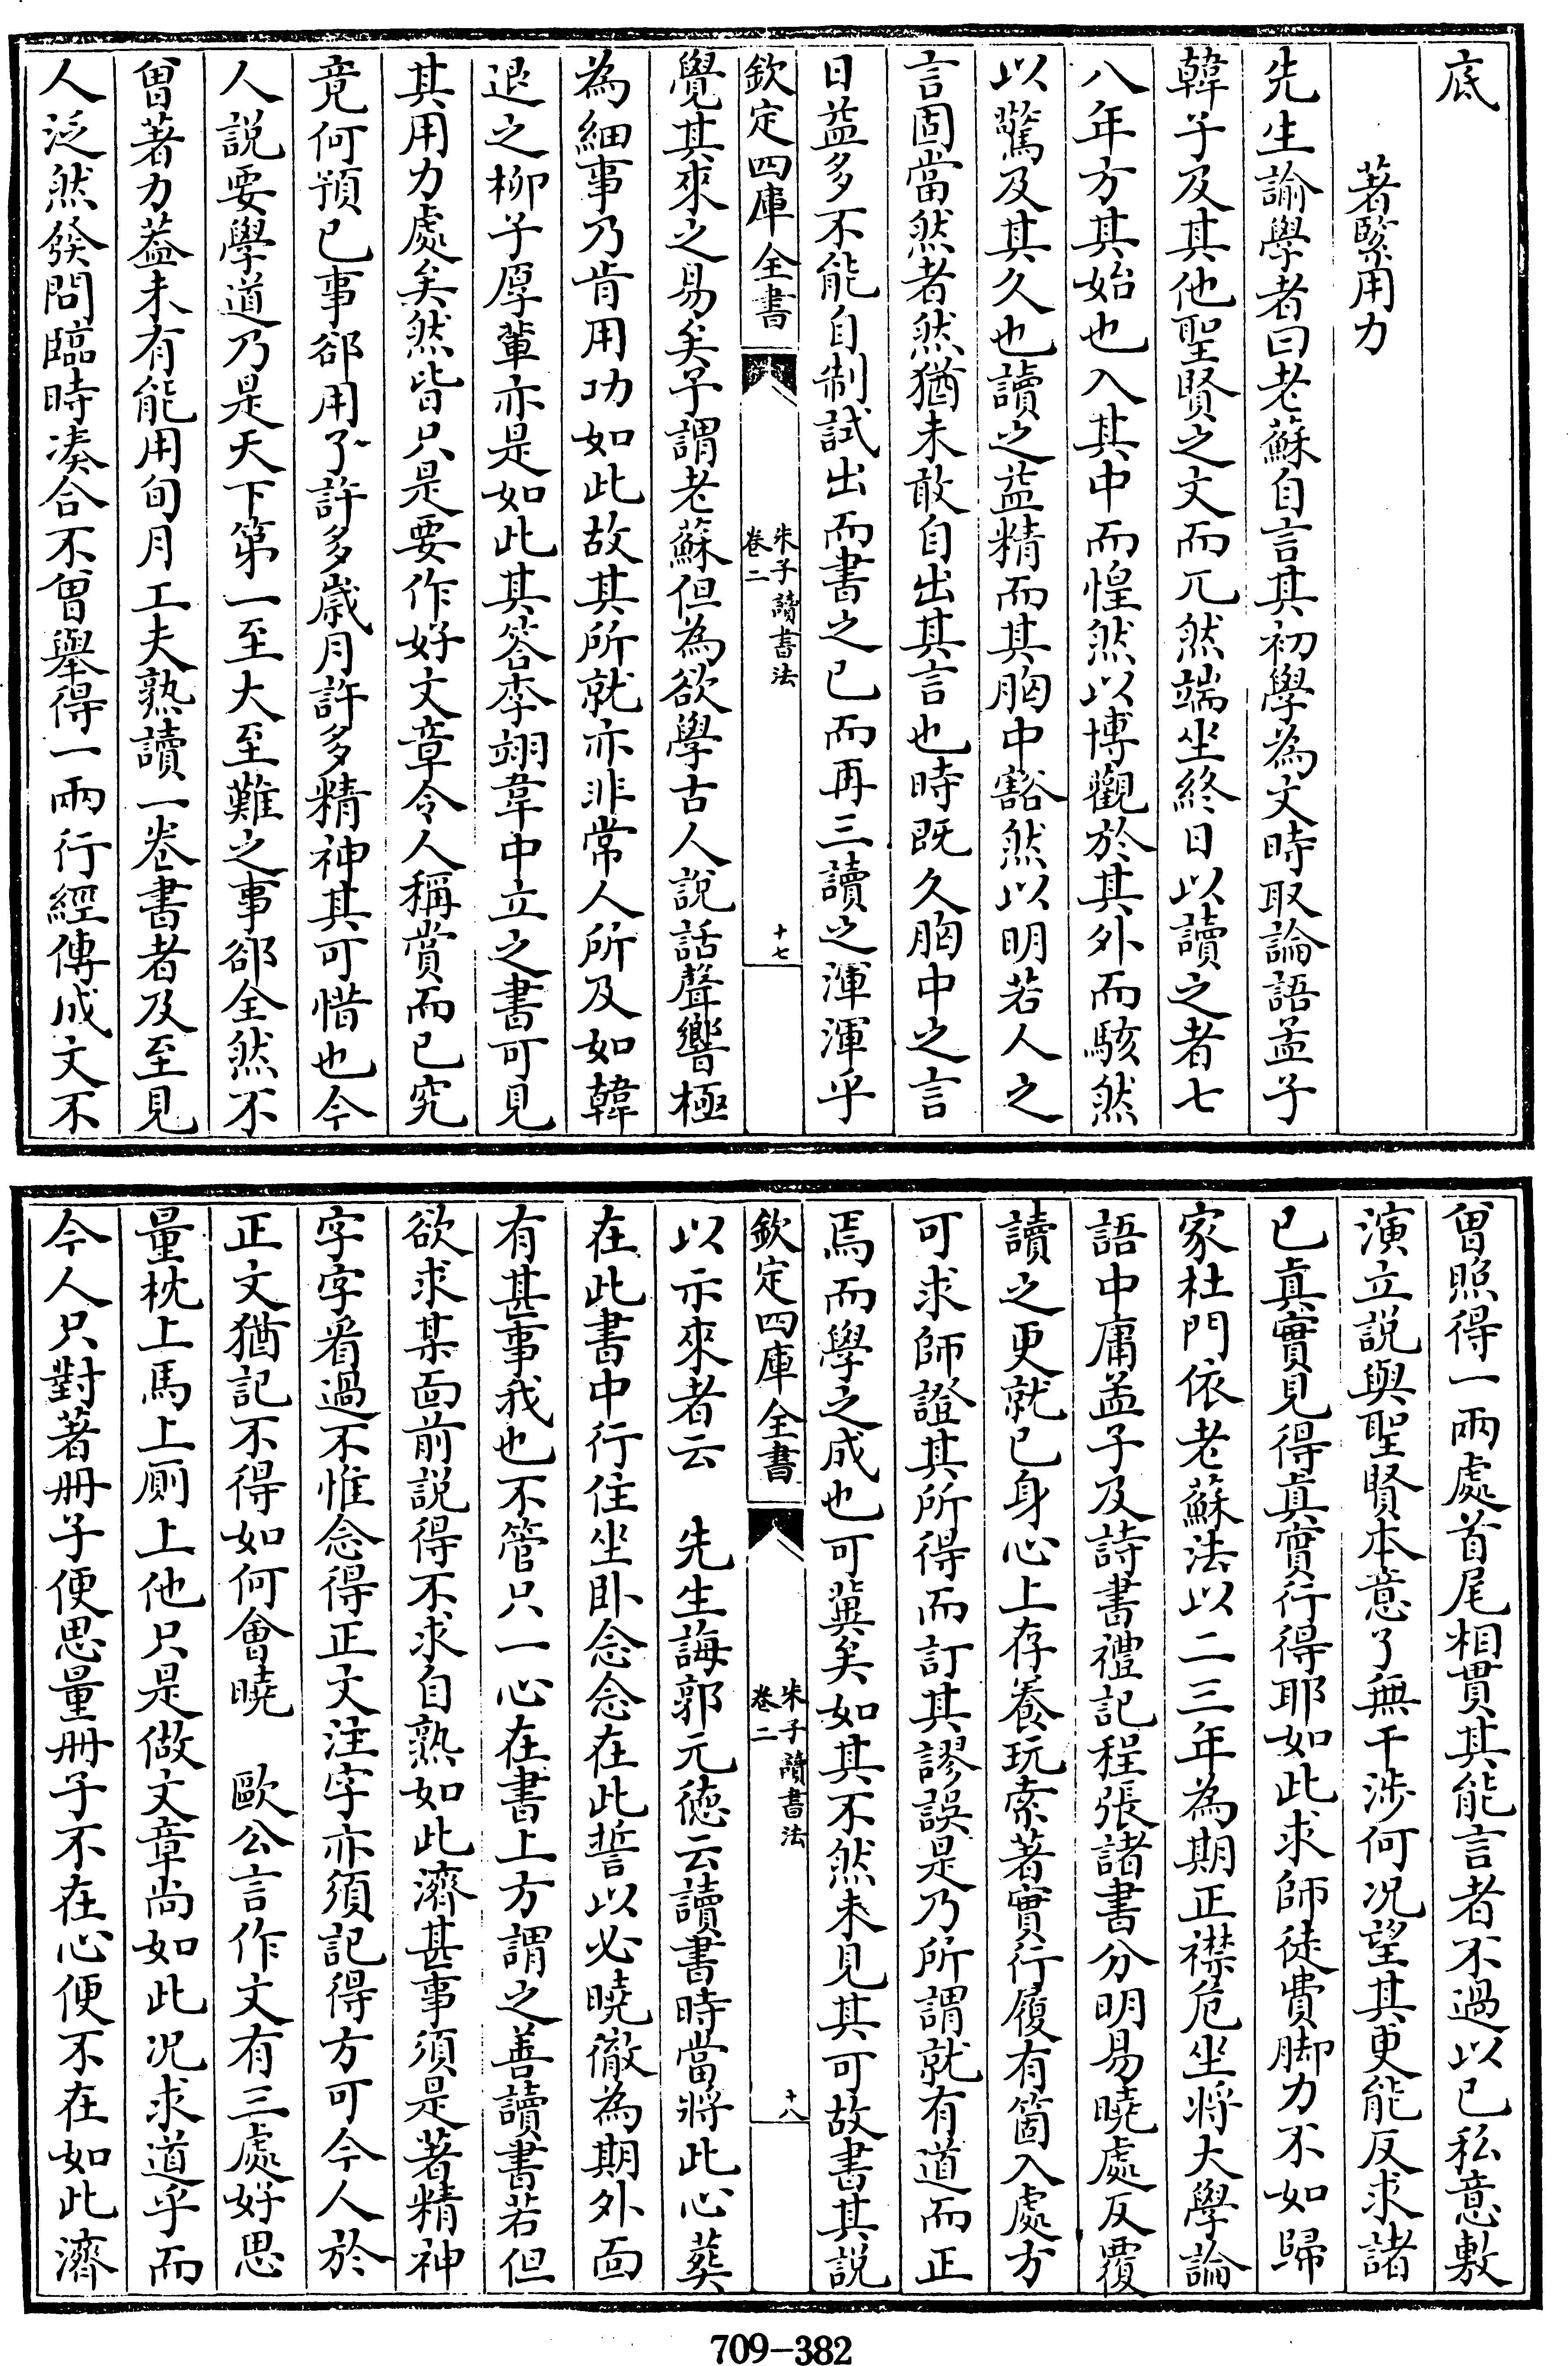 底
著緊用力
先生諭學者曰老蘇自言其初學為文時取論語孟子
韓子及其他聖賢之文而兀然端坐終日以讀之者七
八年方其始也入其中而惶然以博觀於其外而駭然
以驚及其久也讀之益精而其胸中豁然以明若人之
言固當然者然猶未敢自出其言也時既久胸中之言
日益多不能自制試出而書之已而再三讀之渾渾乎
欽定四庫全書
朱子讀書法
卷二
十七
覺其來之易矣予謂老蘇但為欲學古人說話聲響極
為細事乃肯用功如此故其所就亦非常人所及如韓
退之柳子厚輩亦是如此其答李翊韋中立之書可見
其用力處矣然皆只是要作好文章令人稱賞而已究
竟何預已事郤用了許多歲月許多精神其可惜也今
人說要學道乃是天下第一至大至難之事郤全然不
曾著力葢未有能用旬月工夫熟讀一卷書者及至見
人泛然發問臨時凑合不曾舉得一兩行經傳成文不
曾照得一兩處首尾相貫其能言者不過以已私意敷
演立說與聖賢本意了無干涉何况望其更能反求諸
已真實見得真實行得耶如此求師徒費脚力不如歸
家杜門依老蘇法以二三年為期正襟危坐將大學論
語中庸孟子及詩書禮記程張諸書分明易曉處反覆
讀之更就已身心上存養玩索著實行履有箇入處方
可求師證其所得而訂其謬誤是乃所謂就有道而正
焉而學之成也可冀矣如其不然未見其可故書其說
欽定四庫全書
朱子讀書法
卷二
十八
以示來者云　先生誨郭元德云讀書時當將此心葬
在此書中行住坐卧念念在此誓以必曉徹為期外面
有甚事我也不管只一心在書上方謂之善讀書若但
欲求某面前說得不求自熟如此濟甚事須是著精神
字字看過不惟念得正文注字亦須記得方可今人於
正文猶記不得如何會曉　歐公言作文有三處好思
量枕上馬上厠上他只是做文章尚如此况求道乎而
今人只對著冊子便思量冊子不在心便不在如此濟
709-382